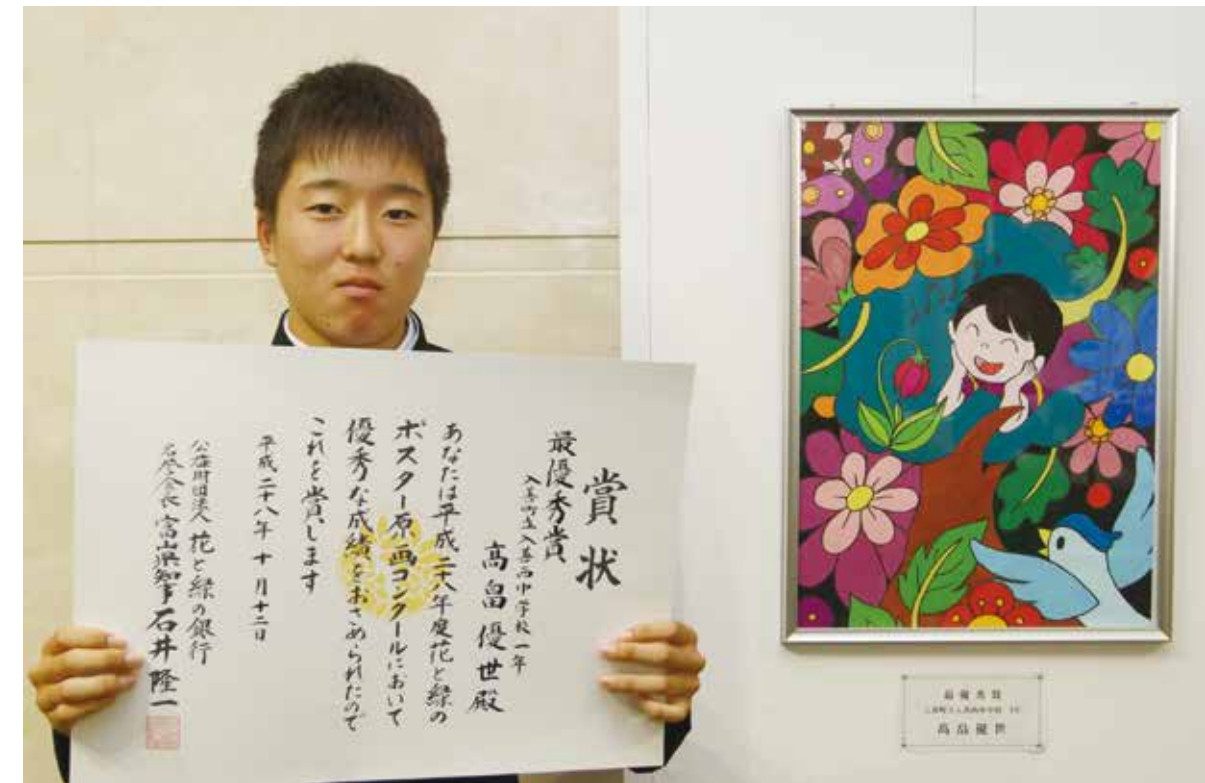 賞状
最優秀賞
入善町立入善西中学校一年
高畠優世殿
あなたは平成二十八年度花と緑の
ポスター原画コンクールにおいて
優秀な成績をおさめられたので
これを賞します
平成二十八年十月十二日
公益財団法人花と緑の銀行
名誉会長富山県知事石井隆一
最優秀賞
入善町立入善西中学校 1年
高畠優世